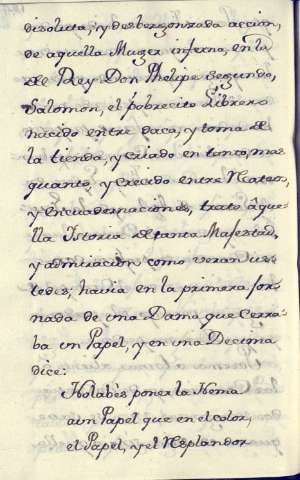 disoluta, y desbergonzada accion,
de aquella Muger inferno, en la
del Rey Don Phelipe Segundo,
Salomon, el pobrecito Librero
nacido entre daca, y toma de
la tienda, y criado en tanto, mas
quanto, y crecido entre
y encuadernaciones, trato aque-
lla Istoria de tanta Majestad,
y admiracion como veran us-
tedes; havia en la primera jor-
nada de una Dama que cerra-
ba un Papel, y en una Decima
dice:
poner la Nema
a un Papel que en el color,
el Papel, y el Resplandor